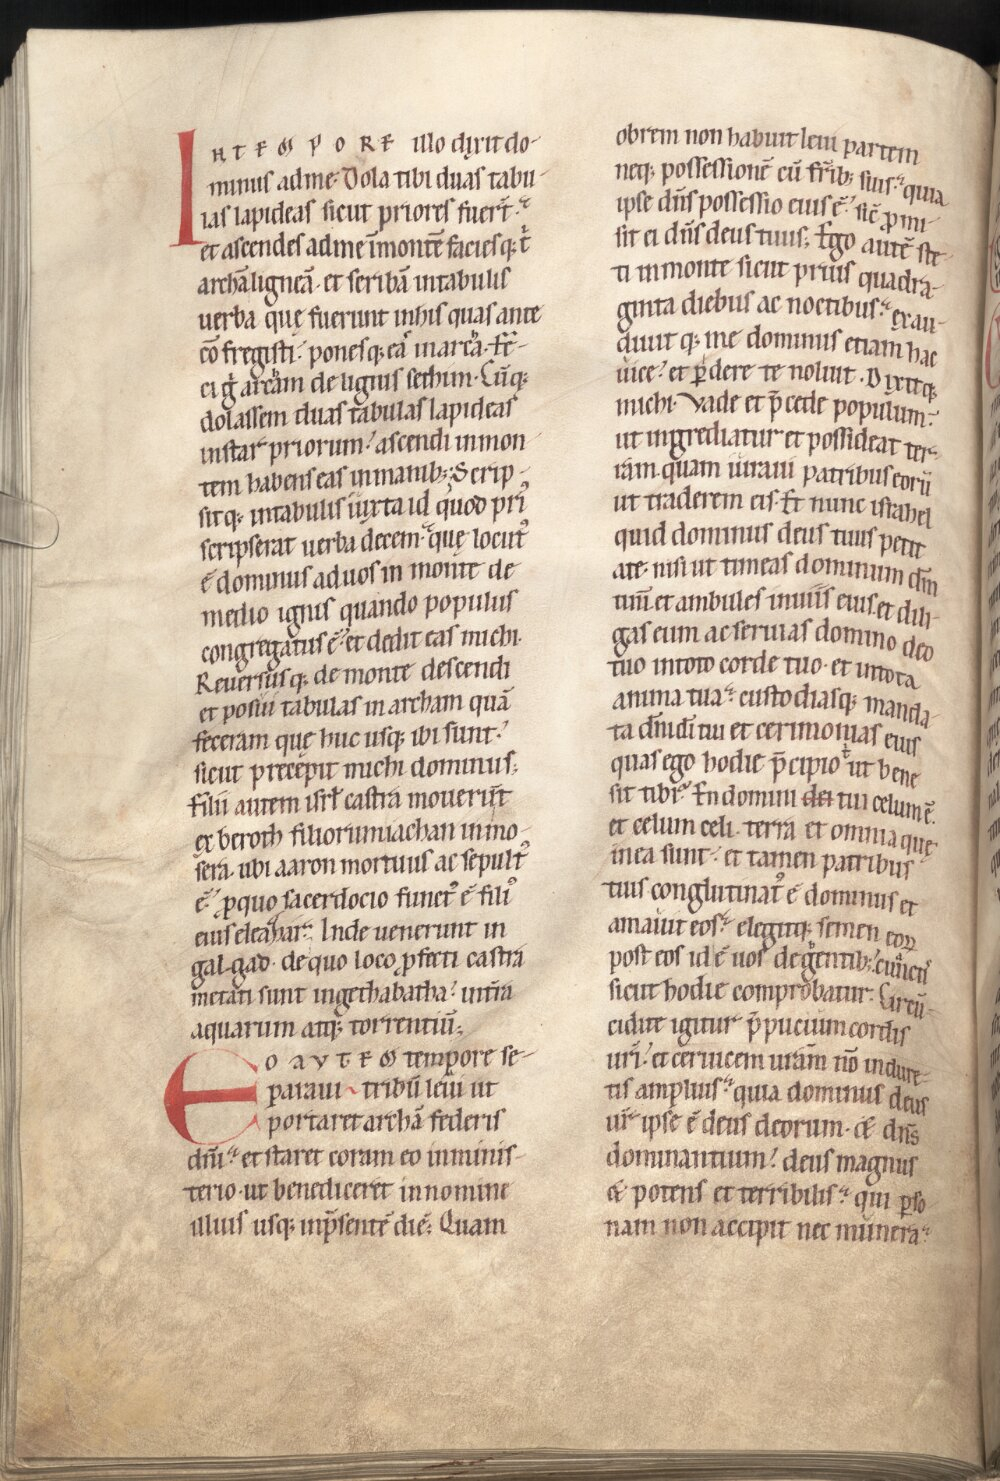 IN TEMPORE illo dixit do-
minus ad me. Dola tibi duas tabu-
las lapideas sicut priores fuer̄t.
et ascendes ad me īmontē facies q; t̄
archā ligneā. et scribā intabulis
uerba quę fuerunt inhis quas ante
eō fregisti. ponesq; eā inarcā. Fe-
ci g̊ arcam de lignis sethim. Cūq;
dolassem duas tabulas lapideas
instar priorum. ascendi inmon
tem habens eas inmanib; Scrip-
sitq; intabulis iuxta id quod pri᾿
scripserat uerba decem. quę locut᾿
ē dominus ad uos in monte de
medio ignis quando populus
congregatus ē. et dedit eas michi.
Reuersusq; de monte descendi
et posui tabulas in archam quā
feceram quę huc usq; ibi sunt.
sicut precepit michi dominus;
Filii autem isrł castra mouer̄t
ex beroth filiorum iachan inmo-
sera. ubi aaron mortuus ac sepult᾿
ē. ꝓquo sacerdocio funct᾿ ē fili᾿
eius eleazar. Inde uenerunt in
gal.gad. de quo loco ꝓfecti castra
metati sunt ingethabatha. interra
aquarum atq; torrentiū;
EO AVTEM tempore se-
paraui tribū leui ut
portaret archā federis
dn̄i. et staret coram eo inminis-
terio. ut benediceret in nomine
illius usq; inp̄sentē diē; Quam
obrem non habuit leui partem
neq; possessionē cū fr̄ib; suis. quia
ipse dn̄s possessio eius ē. sic̄ ꝓmi-
sit ei dn̄s deus tuus; Ego autē ste-
ti inmonte sicut prius quadra-
ginta diebus ac noctibus. exau-
diuit q; me dominus etiam hac
uice. et ꝑdere te noluit. Dixitq;
michi. Vade et p̄cede populum.
ut ingrediatur et possideat ter-
ram quam iuraui patribus eorū
ut traderem eis. Et nunc israhel
quid dominus deus tuus petit
ate. nisi ut timeas dominum dm̄
tuū. et ambules inuiis eius. et dili-
gas eum ac seruias domino deo
tuo intoto corde tuo. et intota
anima tua. custodiasq; manda-
ta dn̄i di᾿ tui et cerimonias eius
quas ego hodie p̄cipio t̄ ut bene
sit tibi. En domini dei tui celum ē.
et celum celi. terra et omnia quę
inea sunt. et tamen patribus
tuis conglutinat᾿ ē dominus et
amauit eos. elegitq; semen eoꝝ
post eos id ē uos de gentib; cunctis
sicut hodie comprobatur. Circū-
cidite igitur p̄pucium cordis
uri᾿. et ceruicem uram̄ nō indure-
tis amplius. quia dominus deus
ur̄ ipse ē deus deorum. & dn̄s
dominantium. deus magnus
& potens et terribilis. qui ꝑso
nam non accipit nec munera.